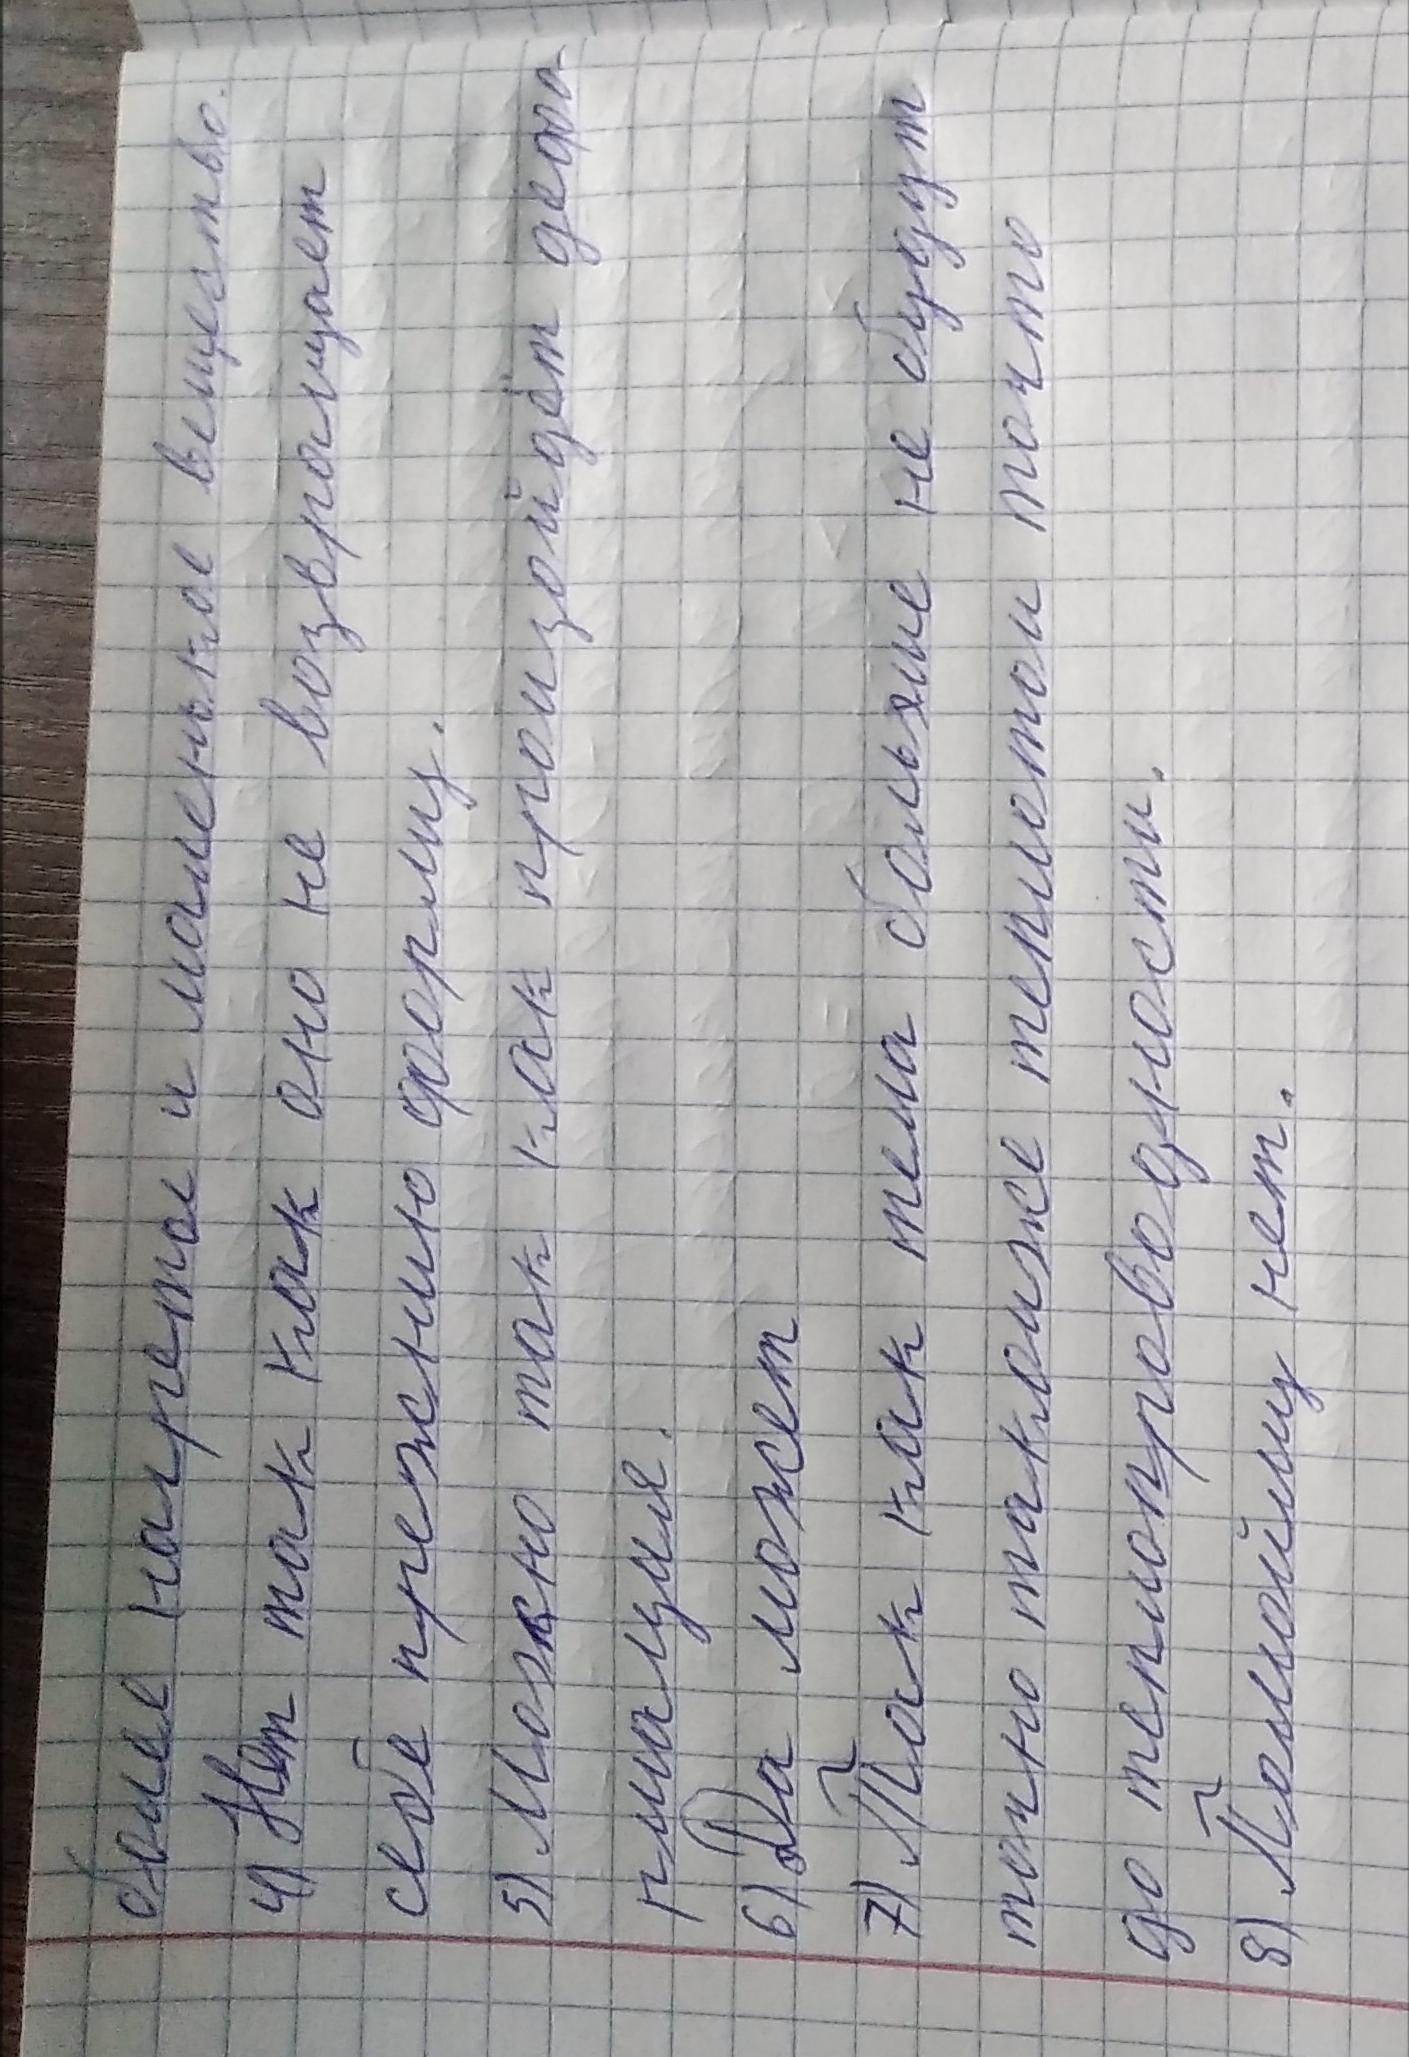 более нагретое и маленькое вещество.
4) Нет так как оно не возвращает
себе прежнию форму.
5) Можно так как произойдёт дефо
рмация.
6) Да может
7) Так как тела больше не будут
точно такоиже теплотои точто
до теплопроводности.
8) Помойму нет.